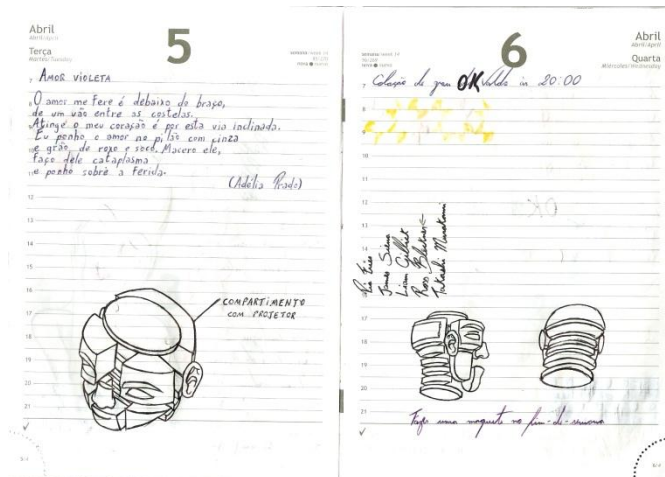 Abril
Abril/April
5
Terça
Martes/Tuesday
semana/week 14
AMOR VIOLETA
O amor me fere é debaixo do braço,
de um vão entre as costelas.
Atinge o meu coração é por esta via inclinada.
Eu ponho o amor no pilão com cinza
e grão de roxo e soco. Macero ele,
faço dele cataplasma
e ponho sobre a ferida.
(Adélia Prado)
12
13
14
15
16
17
18
19
20
21
COMPARTIMENTO
COM PROJETOR
6
Abril
Abril/April
Quarta
Miércoles/Wednesday
semana/week 14
7
Colação de grau OK in 20:00
8
9
10
11
12
13
14
15
Pia Fries
James Siena
Liam Gillick
Ross Bleckner
Takashi Murakami
17
18
19
20
21
Fazer uma maquete no fim-de-semana